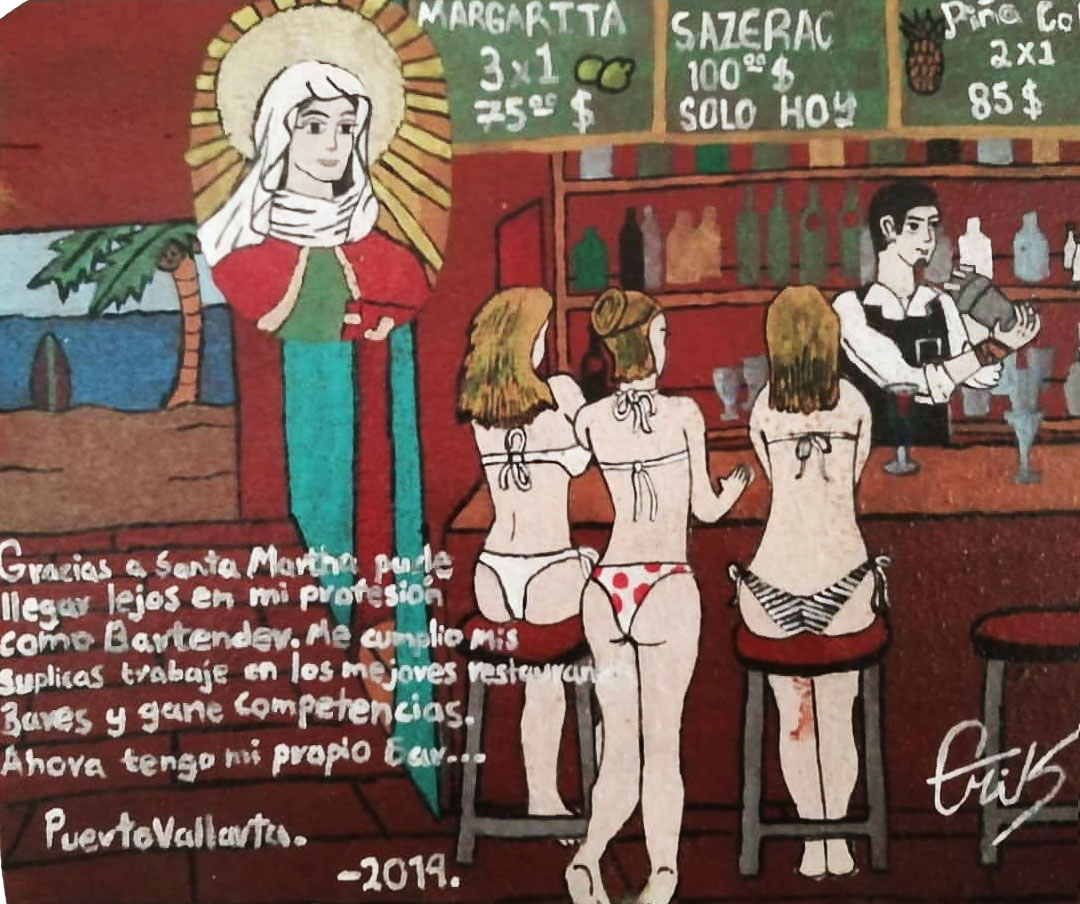 MARGARITA
3x1
75⁰⁰ $
SAZERAC
100⁰⁰ $
SOLO HOY
Piña Col
2x1
85 $
Gracias a Santa Martha pude
llegar lejos en mi profesión
como Bartender. Me cumplio mis
suplicas trabaje en los mejores restaurantes
Bares y gane competencias.
Ahora tengo mi propio bar...
Puerto Vallarta.
-2019.
Erik